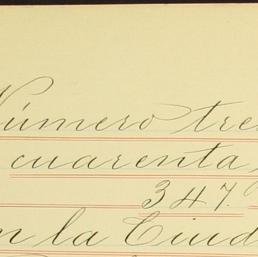 Número tre
cuarenta
347.
n la Ciud